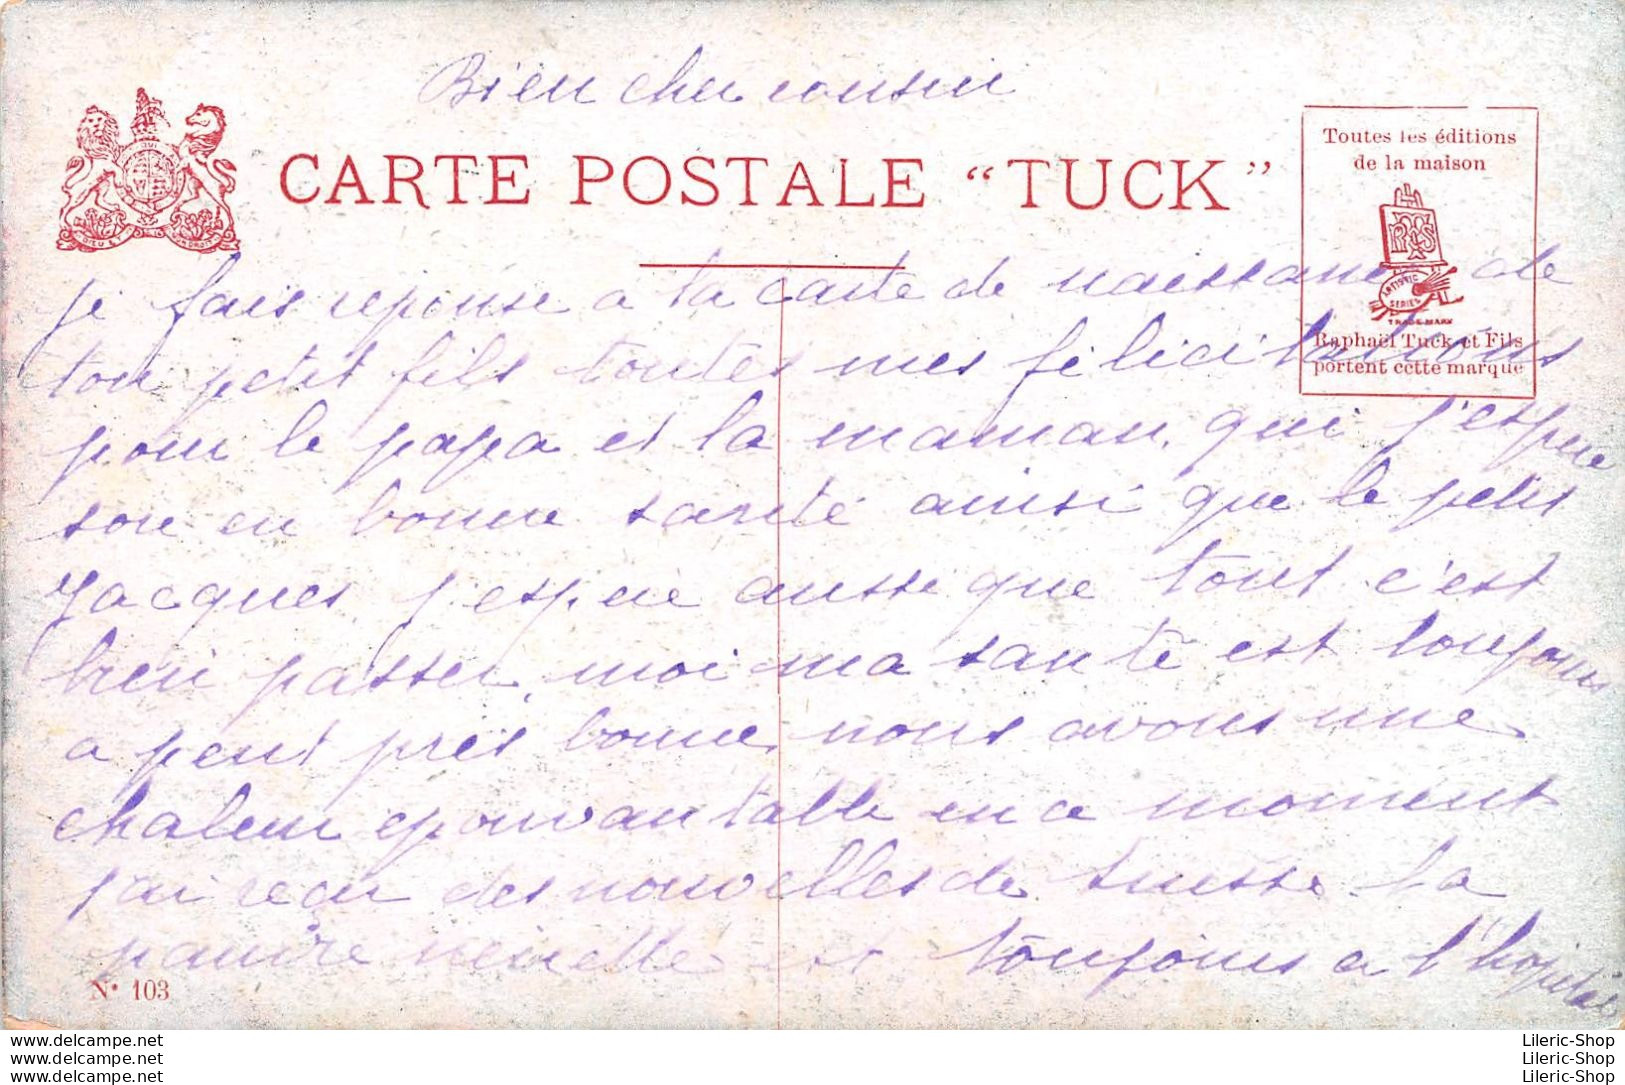 Bien cher cousin
CARTE POSTALE “TUCK”
Toutes les éditions
de la maison
ARTISTIC
SERIES
TRADE MARK
Raphaël Tuck et Fils
portent cette marque
je fais reponse a la carte de naissance de
ton petit fils toutes mes félicitations
pour le papa et la maman, qui j'espere
son en bonne santé ainsi que le petit
Jacques j'espere aussi que tout c'est
bien passer, moi ma santé est toujours
a peut près bonne, nous avons une
chaleur epouvantable en ce moment
j'ai reçu des nouvelles de Suisse la
pauvre est toujours a l'hopital
N° 103
www.delcampe.net
www.delcampe.net
www.delcampe.net
Lileric-Shop
Lileric-Shop
Lileric-Shop